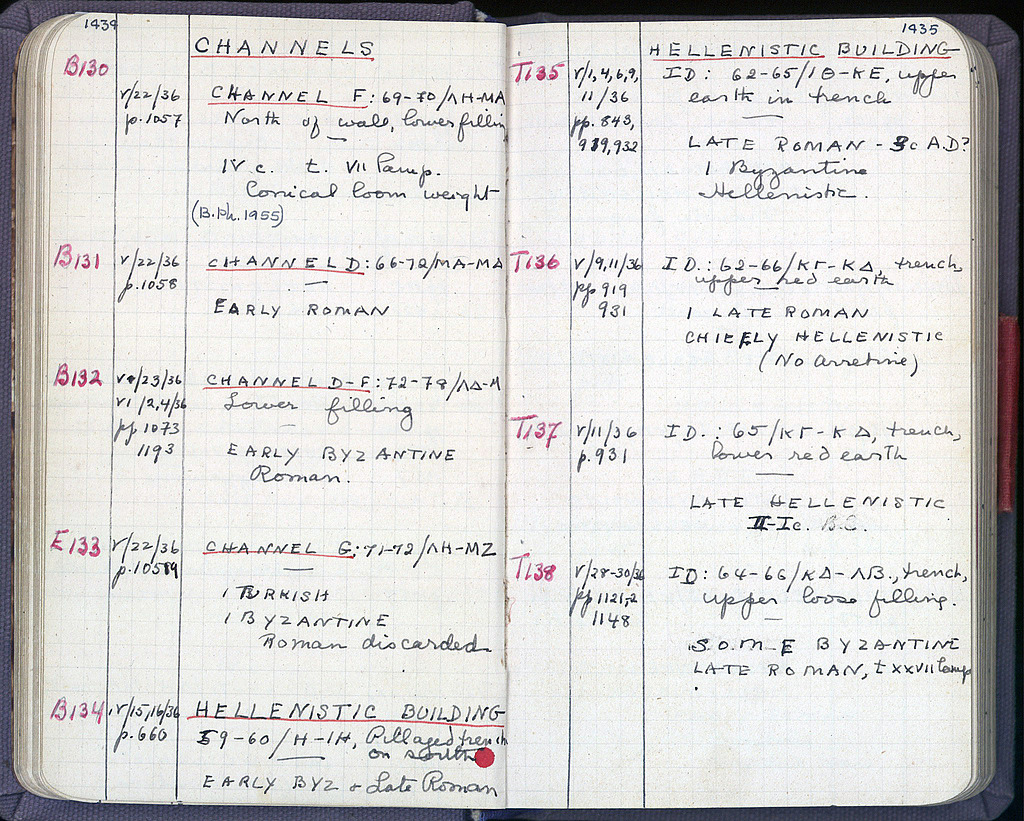 1434
CHANNELS
B130
V/22/36
p.1057
CHANNEL F: 69-70/ΛH-MA
North of wall, lower filling
IV c. t. VII Lamp.
Conical loom weight
(B.Ph. 1955)
B131
V/22/36
p.1058
CHANNEL D: 66-72/MA-MΔ
EARLY ROMAN
B132
V/23/36
VI/2,4/36
pp 1073
1193
CHANNEL D-F: 72-78/ΛΔ-M
Lower filling
EARLY BYZANTINE
Roman.
E133
V/22/36
p.1059
CHANNEL G: 71-72/ΛH-MZ
1 TURKISH
1 BYZANTINE
Roman discarded
B134
IV/15,16/36
p.660
HELLENISTIC BUILDING
59-60/H-IH, Pillaged trench
on south
EARLY BYZ + Late Roman
1435
HELLENISTIC BUILDING
T135
V/1,4,6,9,
11/36
pp. 843,
919,932
ID: 62-65/IΘ-KE, upper
earth in trench
LATE ROMAN - 3c A.D?
1 Byzantine
Hellenistic.
T136
V/9,11/36
pp 919
931
ID.: 62-66/KΓ-KΔ, trench,
upper red earth
1 LATE ROMAN
CHIEFLY HELLENISTIC
(No Arretine)
T137
V/11/36
p.931
ID.: 65/KΓ-KΔ, trench,
lower red earth
LATE HELLENISTIC
II-Ic. B.C.
T138
V/28-30/36
pp 1121,2
1148
ID: 64-66/KΔ-ΛB., trench,
upper loose filling.
SOME BYZANTINE
LATE ROMAN, t XXVII lamp